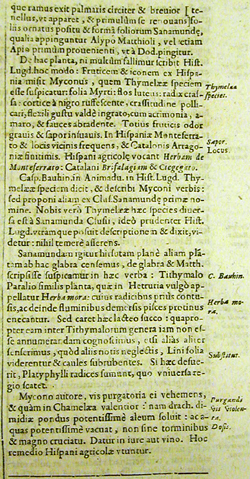 que ramus exit palmaris circiter & breuior [te-
nellus, vt apparet, & primulùm se renouans] fo-
lioru ornatus positu & forma foliorum Sanamundæ,
qualis appinguntur Alypo Matthioli, vel etiam
Apio primùm prouenienti, vt à Dod. pingitur.
De hac planta, ni multùm fallimur scribit Hist.
Lugd. hoc modo: Fruticem & iconem ex Hispa-
nia misit Myconus, quem Thymelææ speciem
esse suspicatur: folia Myrti: flos luteus: radix cras-
sa cortice à nigro ruffescente, crassitudine polli-
cari, fictili gustu valdè ingrato, cum acrimonia,
amaro, & fauces abradente. Totus frutex odor
grauis & saporis suauis. In Hispaniæ Monteserra-
to & locis vicinis frequens, & Cataloniæ Arrago-
niæ finitimis. Hispani agricolæ vocant Herbam de
Monteserrato: Catalani Brifolagiam & Ciegegaro.
Casp. Bauhin. in Animadu. in Hist. Lugd. Thy-
melææ speciem dicit, & describi Myconi verbis:
sed proponi aliam ex Clus. Sanamundæ primæ no-
mine. Nobis verò Thymelææ hæc species diuer-
sa est à Sanamunda Clusij, ideò prudenter Hist.
Lugd. vtramque posuit descriptionem & dixit, vi-
detur: nihil temerè asserens.
Sanamundam igitur hirsutam planè aliam plan-
tam ab hac glabra censemus, de glabra & Matth.
scripsisse suspicamur in hæc verba: Tithymalo
Paralio similis planta, quæ in Hetruria vulgò ap-
pellatur Herba mora: cuius radicibus priùs contu-
sis, ac deinde fluminibus demersis pisces protinus
enecantur. Sed caret hæc lacteo succo: quapro-
pter eam inter Tithymalorum genera iam non es-
se annumerar. dam cognoscimus, etsi aliàs aliter
senserimus, quòd aliis notis neglectis, Lini folia
viderentur & caules subrubentes. Si hæc defue-
rit, Platyphylli radices sumunt, quo vniuersa re-
gio scatet.
Mycono autore, vis purgatoria ei vehemens,
& quàm in Chamelæa valentior: nam drach. di-
midiæ pondus potentissimè aluum soluit: & a-
quas potentissimè vacuat, non sine torminibus
& magno cruciatu. Datur in iure aut vino. Hoc
remedio Hispani agricolæ vtuntur.
Thymelææ
species.
Sapor.
Locus.
C. Bauhin.
Herba mo-
ra.
Substitut.
Purgandi
vis violen-
ta.
Dosis.